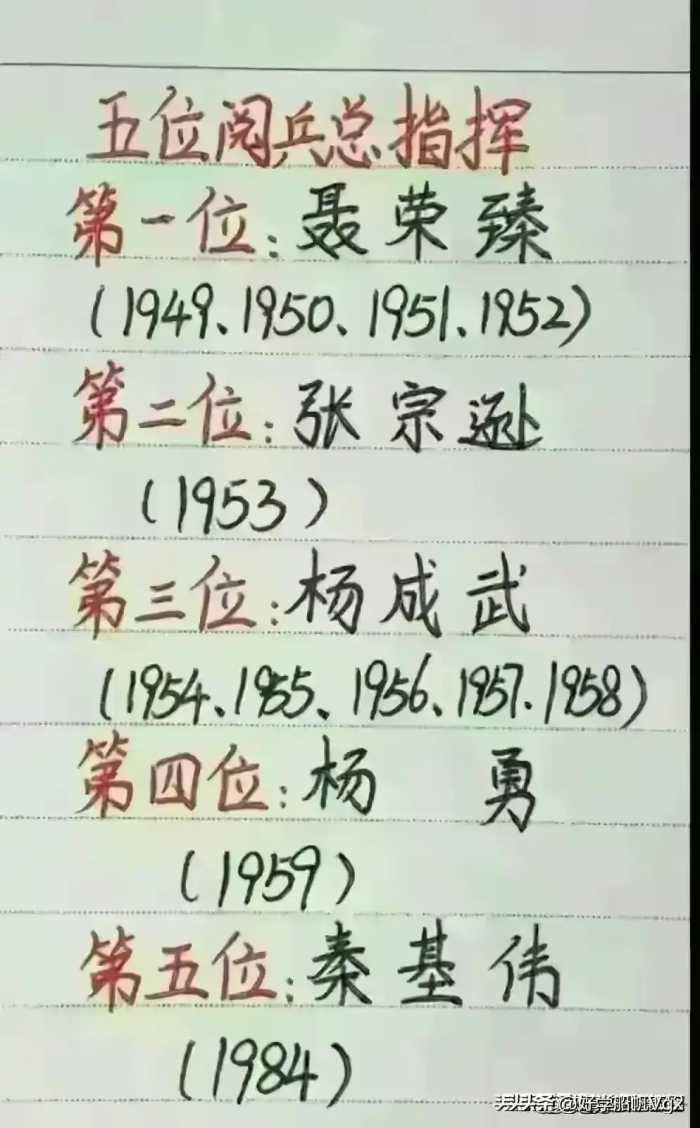 五位阅兵总指挥
第一位：聂荣臻
（1949、1950、1951、1952）
第二位：张宗逊
（1953）
第三位：杨成武
（1954、1955、1956、1957、1958）
第四位：杨 勇
（1959）
第五位：秦基伟
（1984）